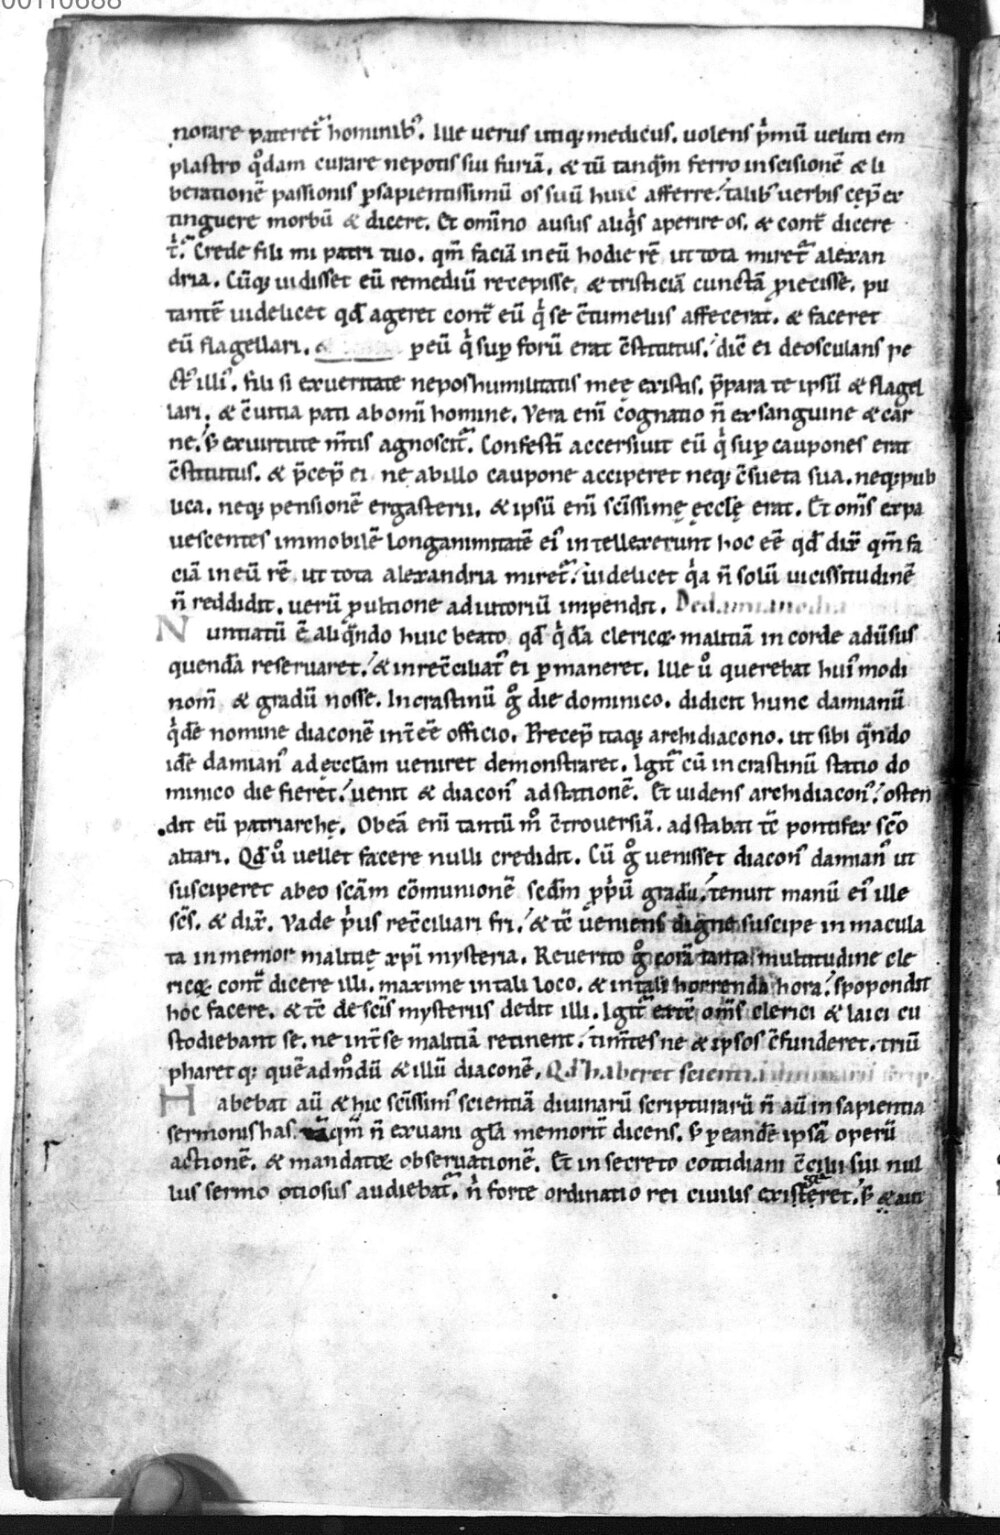 norare pateret᷑ hominib᷒. Ille uerus utiq; medicus. uolens p̾mū ueluti em
plastro q̊dam curare nepotis sui furiā. & tū tanq̄m ferro inscisionē & li
berationē passionis p̱sapientissimū os suū huic afferre. talib᷒ uerbis cep̄ ex
tinguere morbū & dicere. Et om̄ino ausus aliq̾s aperire os. & cont̄ dicere
t̾. Crede fili mi patri tuo. qm̄ faciā in eū hodie rē ut tota miret᷑ alexan
dria. Cūq; uidisset eū remediū recepisse, & tristiciā cunctā p̱iecisse. pu
tantē uidelicet qd̄ ageret cont̄ eū q̾ se c̄tumeliis affecerat. & faceret
eū flagellari. & p̱ eū q̾ sup̱ forū erat c̄stitutus. dic̄ ei deosculans pe
ct᷒ illi᷒. fili si ex ueritate nepos humilitatis meę existis. p̄para te ipsū & flagel
lari. & c̄uitia pati ab om̄i homine. Vera eni᷒ c̄ognatio n̄ ex sanguine & car
ne. s; ex uirtute m̄tis agnoscit᷑. Confestī accersiuit eū q̾ sup̱ caupones erat
c̄stitutus. & p̄cep̄ ei ne ab illo caupone acciperet neq; c̄sueta sua. neq; pub
lica. neq; pensionē ergasterii. & ipsū eni᷒ sc̄issimę ęcclę erat. Et om̄s expa
uescentes immobilē longanimitatē ei᷒ intellexerunt hoc eē qd̄ dix̄ qm̄ fa
ciā in eū rē ut tota alexandria miret᷑. uidelicet q̾a n̄ solū uicissitudinē
n̄ reddidit. uerū p̱ ultione adiutoriū impendit. De damiano
Nuntiatū ē aliq̄ndo huic beato qd̄ q̾dā clericoꝝ malitiā in corde adūsus
quendā reseruaret. & inrec̄ciliat᷒ ei p̱maneret. Ille u̾ querebat hui᷒modi
nom̄ & gradū nosse. In crastinū g̊ die dominico. didicit hunc damianū
q̾dē nomine diaconē int̄ eē officio. Precep̄ itaq; archidiacono. ut sibi q̄ndo
idē damian᷒ ad ęcclam ueniret demonstraret. Igit᷑ cū in crastinū statio do
minico die fieret. uenit & diacon᷒ ad stationē. Et uidens archidiacon᷒. osten
dit eū patriarchę. Ob eā eni᷒ tantū m̊ c̄trouersiā. adstabat tc̄ pontifex sc̄o
altari. Qd̄ u̾ uellet facere nulli credidit. Cū g̊ uenisset diacon᷒ damian᷒ ut
susciperet ab eo scām cōmunionē scdm̄ p̱p̾ū gradū. tenuit manū ei᷒ ille
sc̄s. & dix̄. Vade p̾us rec̄ciliari fri᷒. & tc̄ ueniens digne suscipe inmacula
ta inmemor malitię xp̄i mysteria. Reuerito g̊ corā tanta multitudine cle
ricoꝝ cont̄ dicere illi. maxime in tali loco. & in tali horrenda hora. spopondit
hoc facere. & tc̄ de sc̄is mysteriis dedit illi. Igit᷑ extē om̄s clerici & laici cu
stodiebant se. ne int̄ se malitiā retinent. tim̄tes ne & ipsos c̄funderet. triū
pharet q; quēadm̊dū & illū diaconē. Qd̄ haberet scientiā
Habebat aū & hic sc̄issim᷒ scientiā diuinarū scripturarū n̄ aū in sapientia
sermonis has. qm̄ n̄ ex uani glā memorit̄ dicens. s; p̱ eandē ipsā operū
actionē. & mandatoꝝ obseruationē. Et in secreto cottidiani c̄cilii sui nul
lus sermo otiosus audiebat᷑. n̾ forte ordinatio rei ciuilis existeret. s; & aut